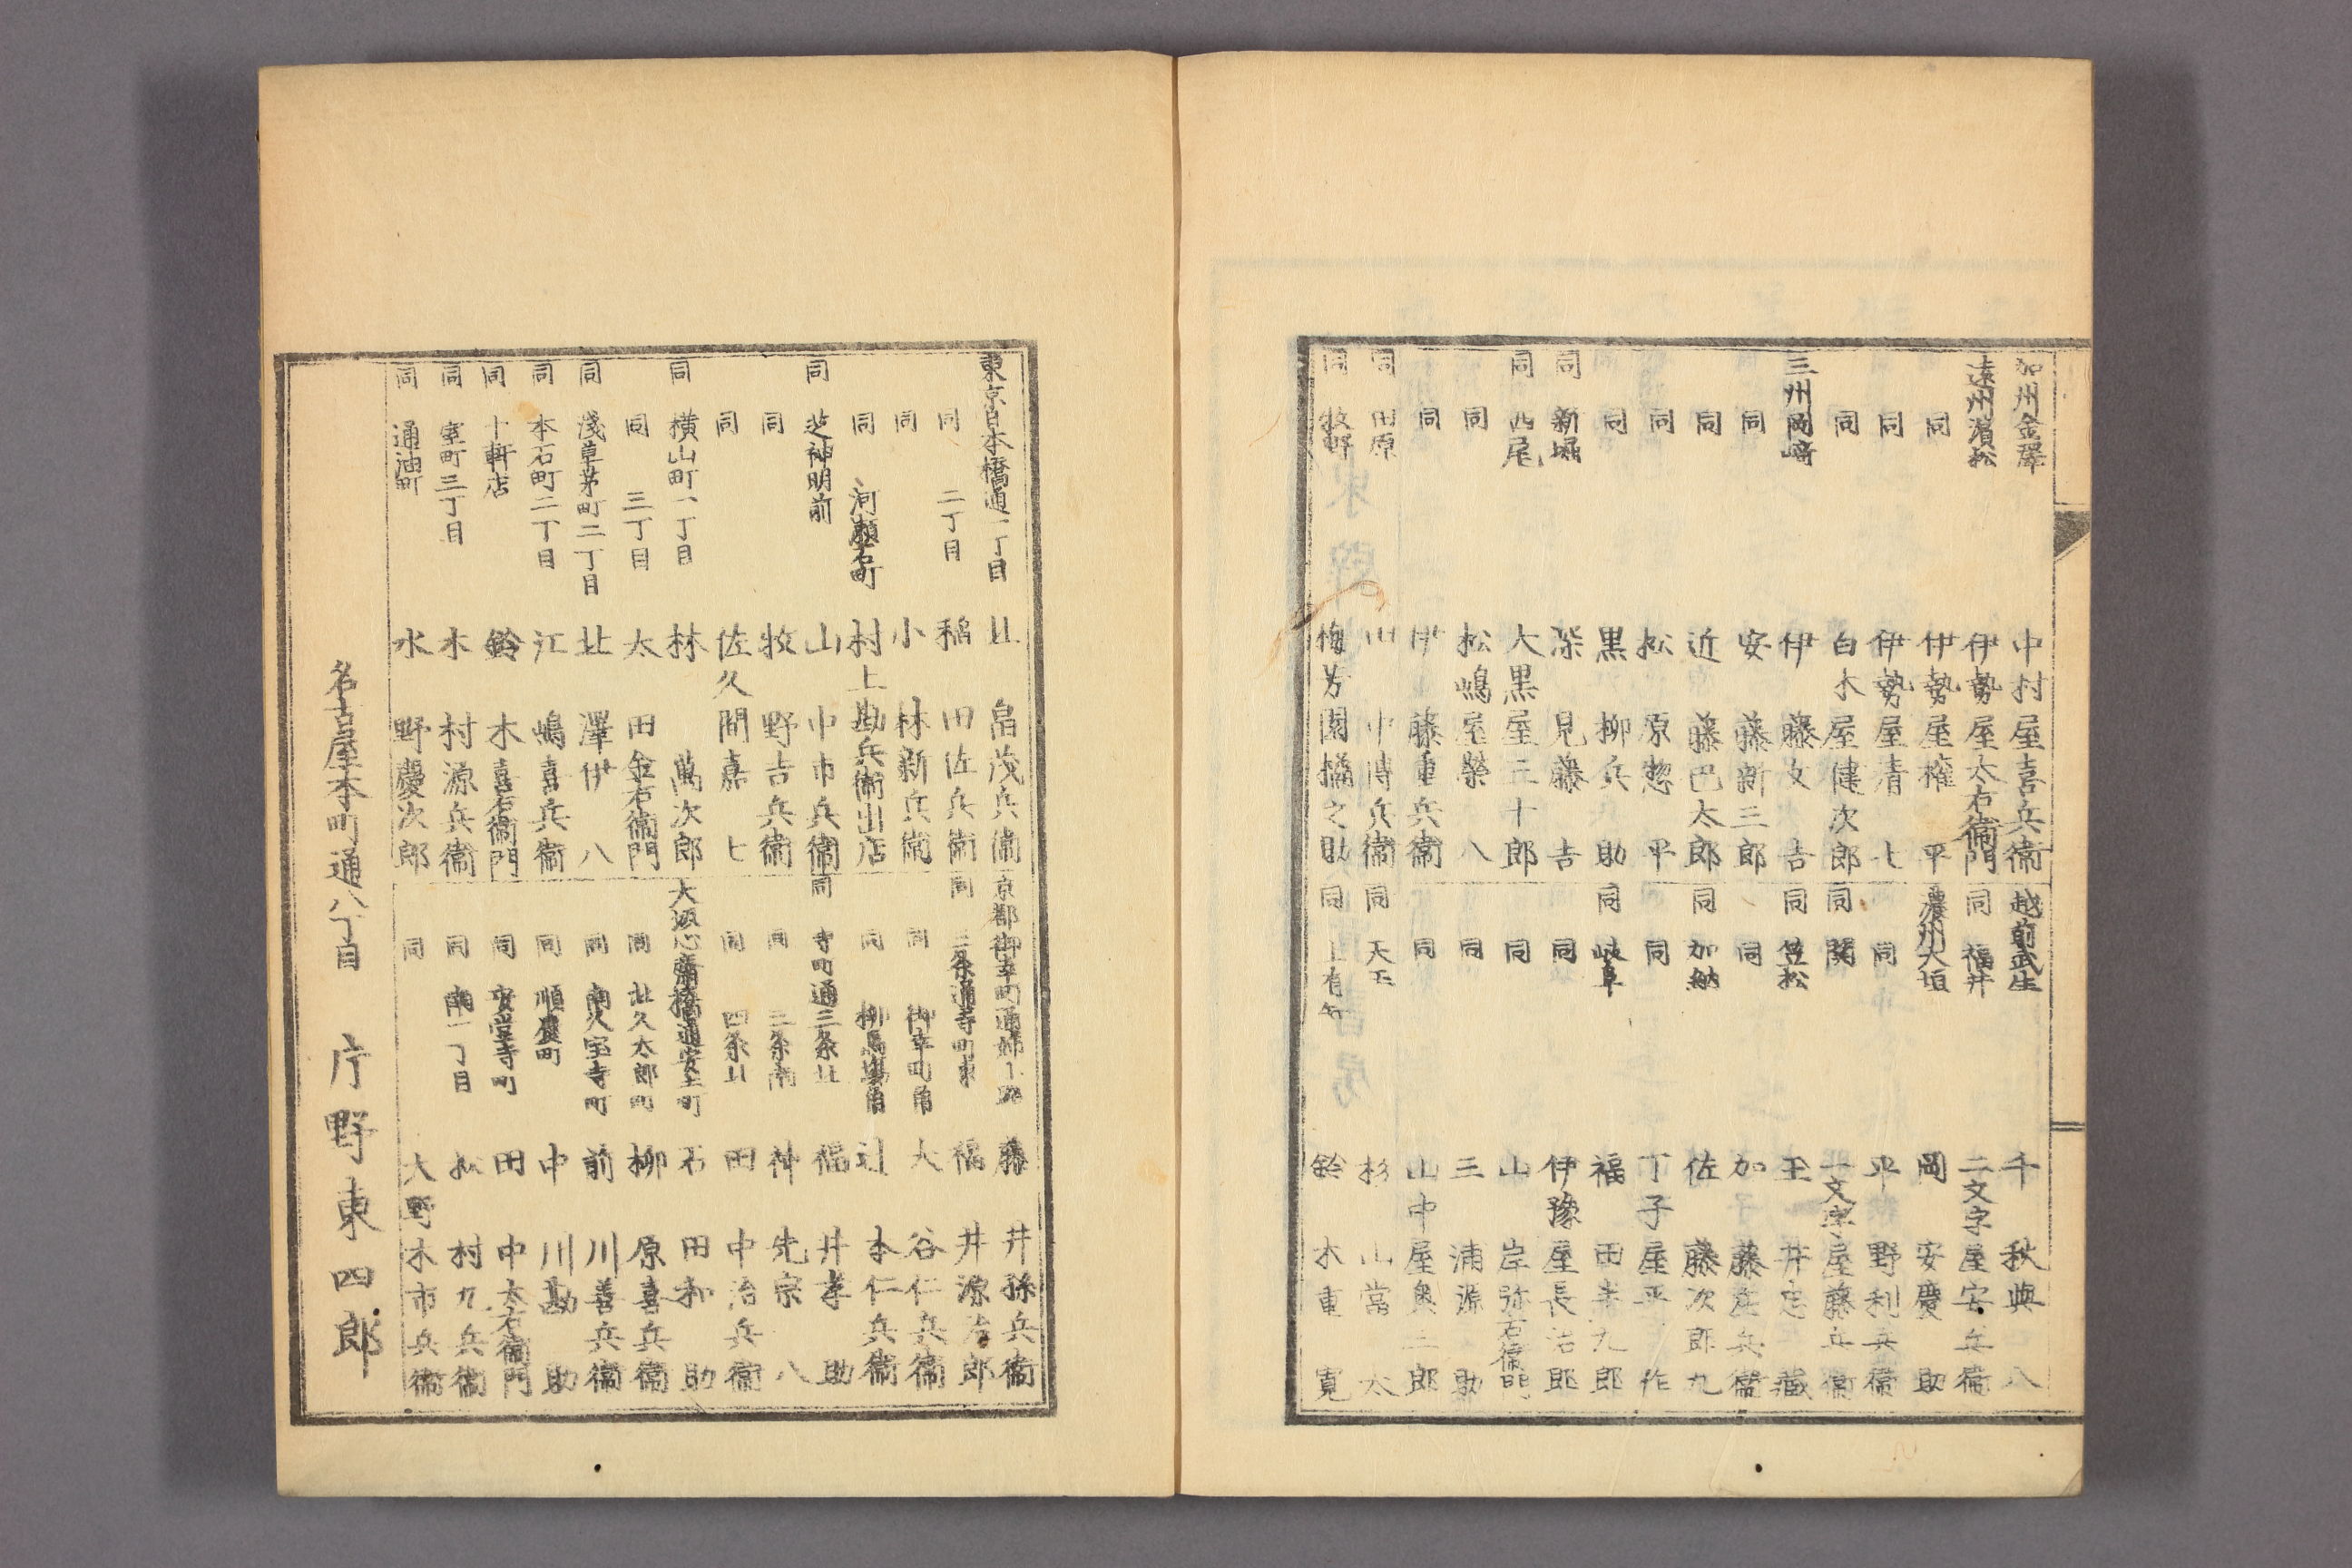 加州金澤 中村屋喜兵衞
遠州濵松 伊勢屋太右衞門
同 伊勢屋權平
同 伊勢屋清七
同 白木屋健次郎
三州岡﨑 伊藤文吉
同 安藤新三郎
同 近藤巴太郎
同 松原惣平
同 黒柳兵助
同 新堀 深見藤吉
同 西尾 大黒屋三十郎
同 松嶋屋榮八
同 伊藤重兵衞
同 田原 山中傳兵衞
同 牧野 梅芳園橘之助
越前武生 千秋與八
同 福井 二文字屋安兵衞
濃州大垣 岡安慶助
同 平野利兵衞
同 関 一文字屋藤兵衞
同 笠松 玉井忠藏
同 加藤庄兵衞
同 加納 佐藤次郎九
同 丁子屋平作
同 岐阜 福田壽九郎
同 伊豫屋長治郎
同 山岸弥右衞門
同 三浦源助
同 山中屋奥三郎
同 大玉 杉山當太
同 上有知 鈴木重寛
東京日本橋通一丁目 北畠茂兵衞
同 二丁目 稲田佐兵衞
同 小林新兵衞
同 河瀬石町 村上勘兵衞出店
同 芝神明前 山中市兵衞
同 牧野吉兵衞
同 佐久間嘉七
同 横山町一丁目 林萬次郎
同 三丁目 太田金右衞門
同 淺草茅町二丁目 北澤伊八
同 本石町二丁目 江嶋喜兵衞
同 十軒店 鈴木喜右衞門
同 室町三丁目 木村源兵衞
同 通油町 水野慶次郎
京都御幸町通姉小路 藤井孫兵衞
同 三条通寺町東 福井源次郎
同 御幸町角 大谷仁兵衞
同 柳馬塲角 辻本仁兵衞
同 寺町通三条北 福井孝助
同 三条南 神先宗八
同 四条北 田中治兵衞
大坂心齋橋通安土町 石田和助
同 北久太郎町 柳原喜兵衞
同 南久宝寺町 前川善兵衞
同 順慶町 中川勘助
同 安堂寺町 田中太右衞門
同 南一丁目 松村九兵衞
同 大野木市兵衞
名古屋本町通八丁目 片野東四郎